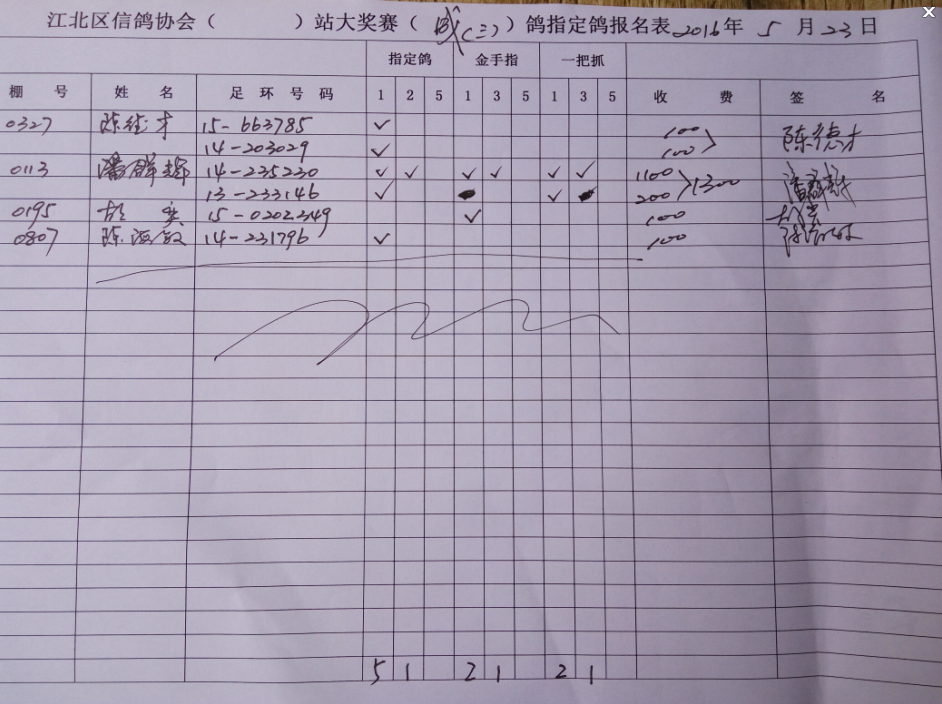 江北区信鸽协会（ ）站大奖赛（ （三））鸽指定鸽报名表 2016年 5 月 23 日
指定鸽 金手指 一把抓
棚 号 姓 名 足 环 号 码 1 2 5 1 3 5 1 3 5 收 费 签 名
0327 陈德才 15-663785 ✓ 100 陈德才
14-203029 ✓ 100
0113 潘群 14-235230 ✓ ✓ ✓ ✓ ✓ ✓ 1100 1300
13-233146 ✓ ✓ 200
0195 胡 15-0202349 ✓ 100
0807 陈 敏 14-231796 ✓ 100
5 1 2 1 2 1